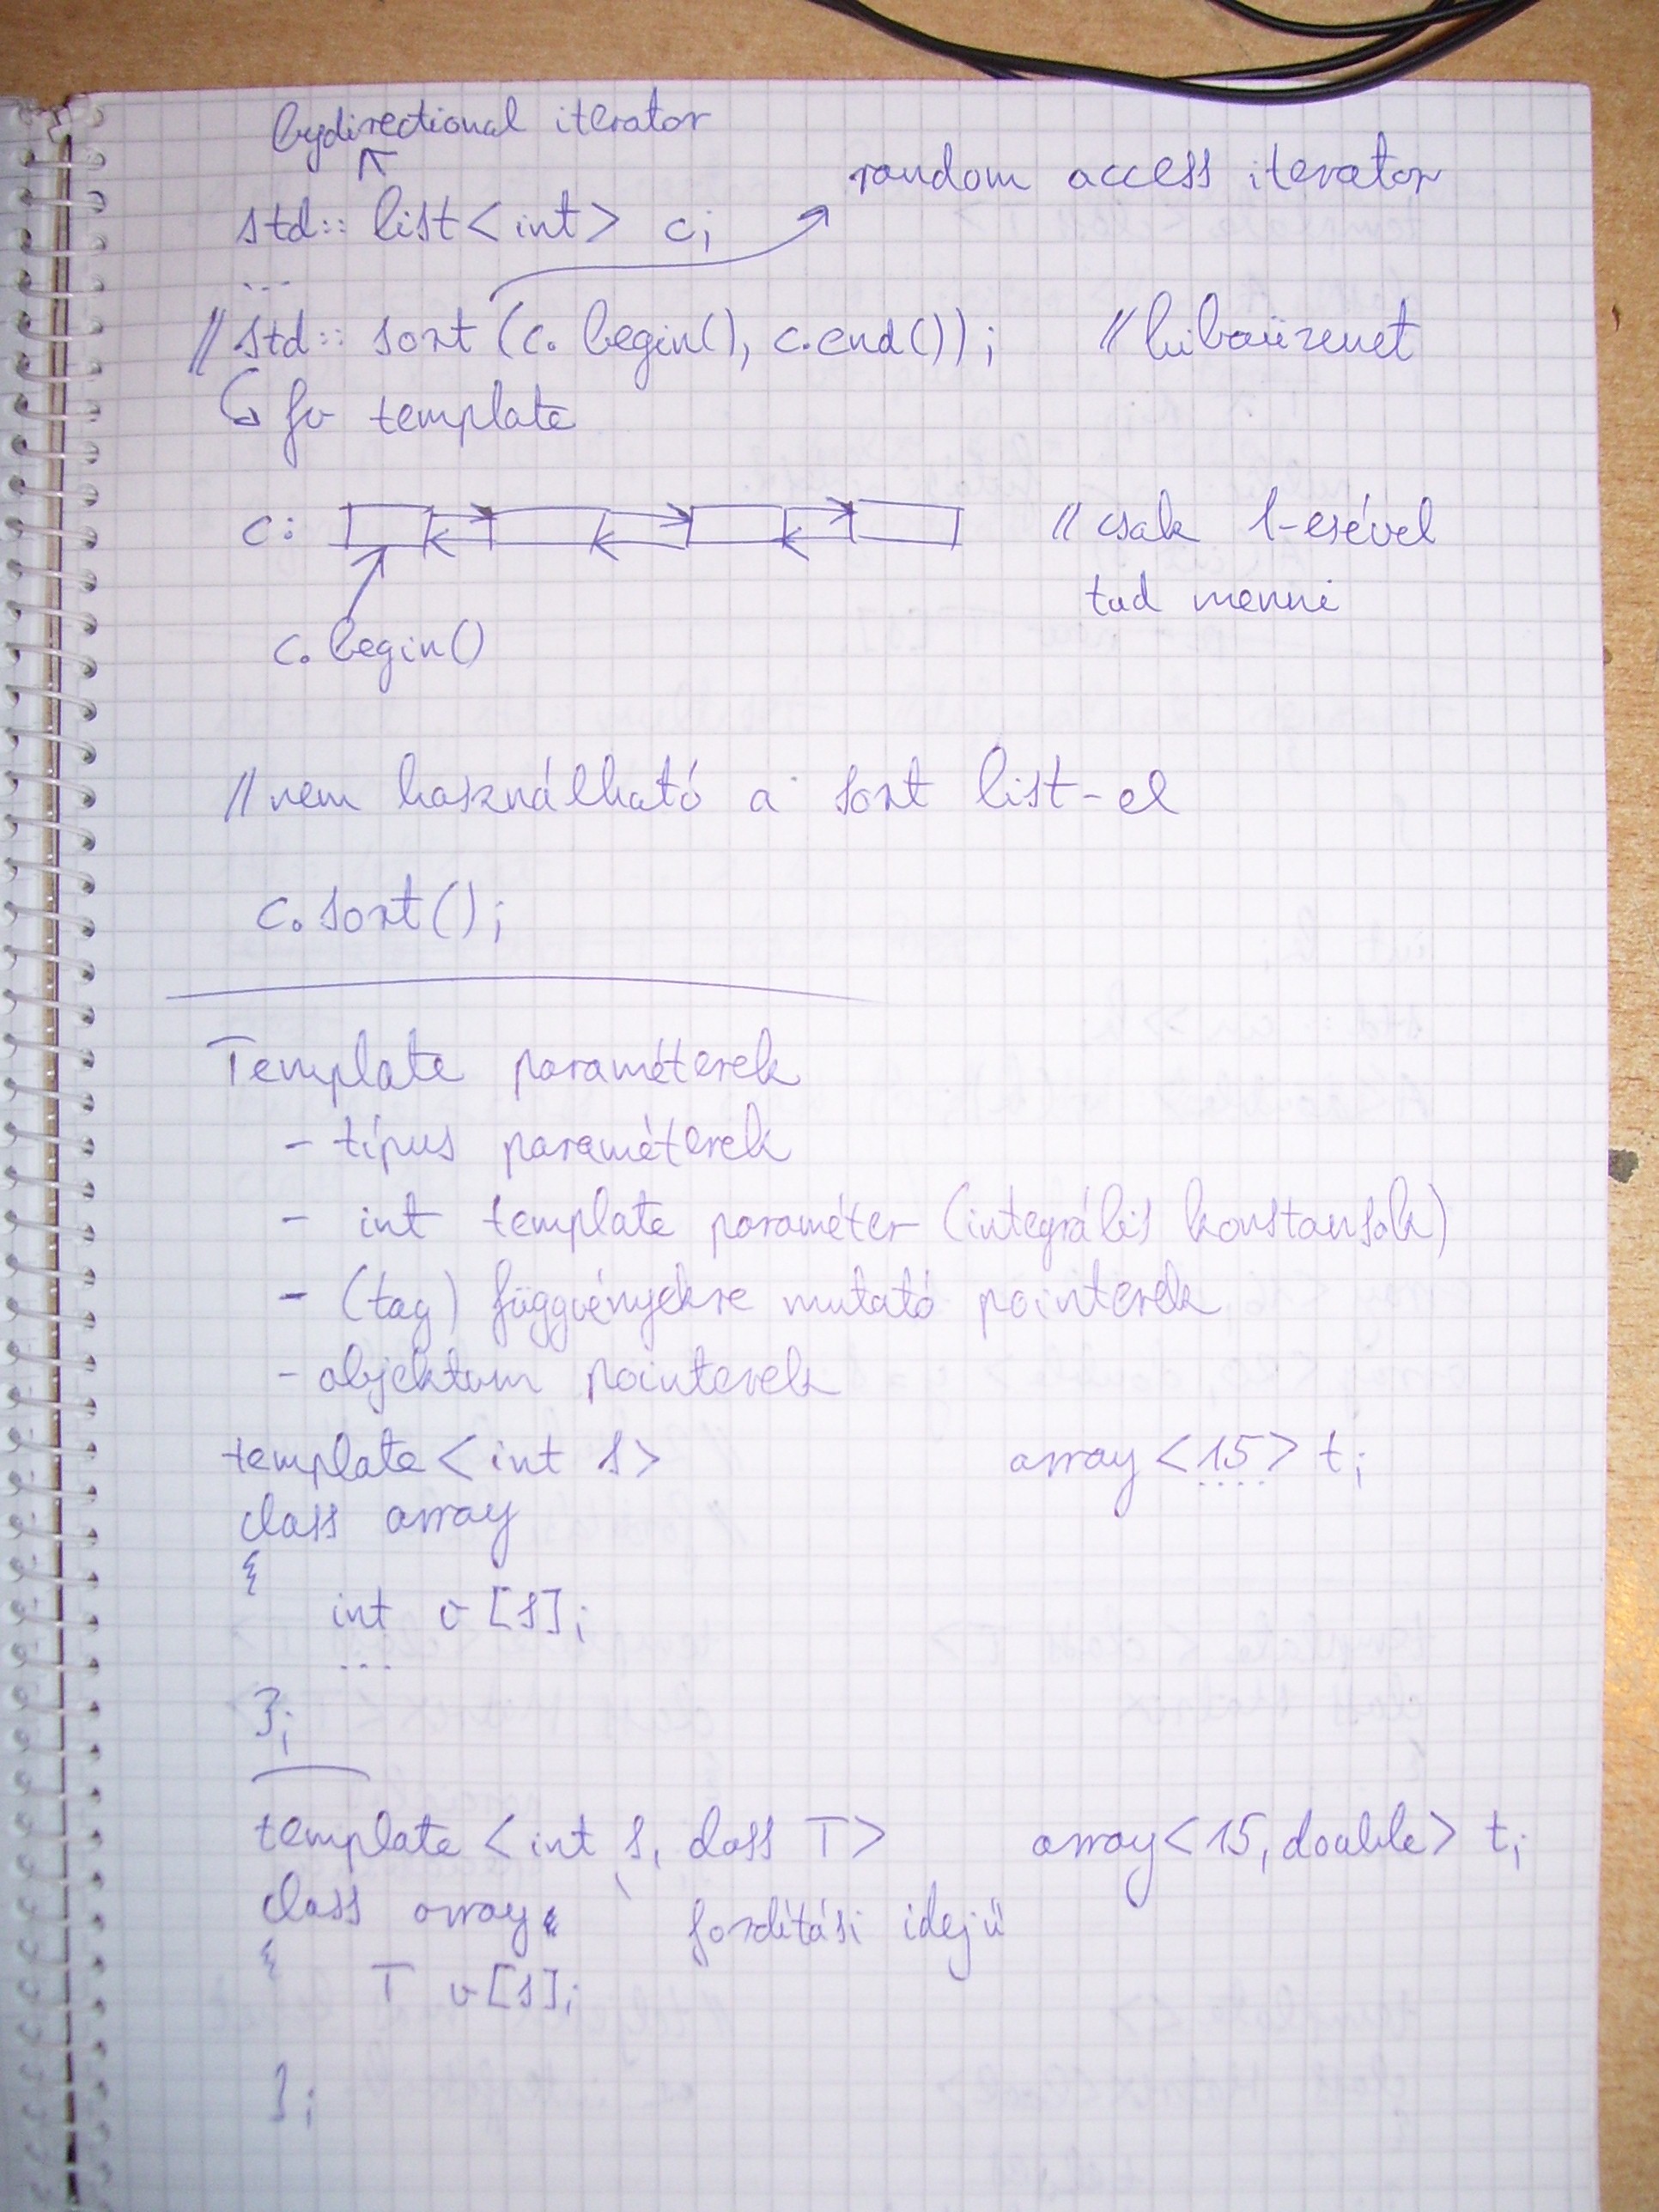 bydirectional iterator
random access iterator
std:: list<int> c;
...
// std:: sort (c. begin(), c.end()); // hibaüzenet
fv template
c: // csak 1-esével
tud menni
c. begin()
// nem használható a sort list-el
c. sort();
Template paraméterek
- típus paraméterek
- int template paraméter (integrális konstansok)
- (tag) függvényekre mutató pointerek
- objektum pointerek
template < int s> array <15> t;
class array
{
int v [s];
...
};
template <int s, class T> array<15, double> t;
class array fordítási idejű
{
T v[s];
};